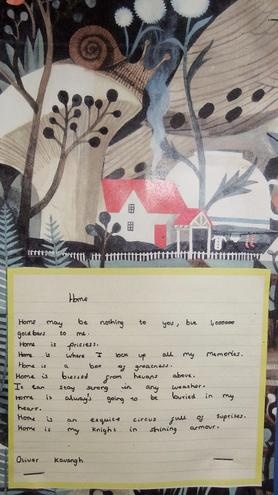 Home
Home may be nothing to you, but 1,000000
goldbars to me.
Home is priceless.
Home is where I lock up all my memories.
Home is a box of greatness.
Home is blessed from heavans above.
It can stay strong in any weather.
Home is always going to be buried in my
heart.
Home is an exquite circus full of suprises.
Home is my knight in shining armour.
Oliver Kavangh